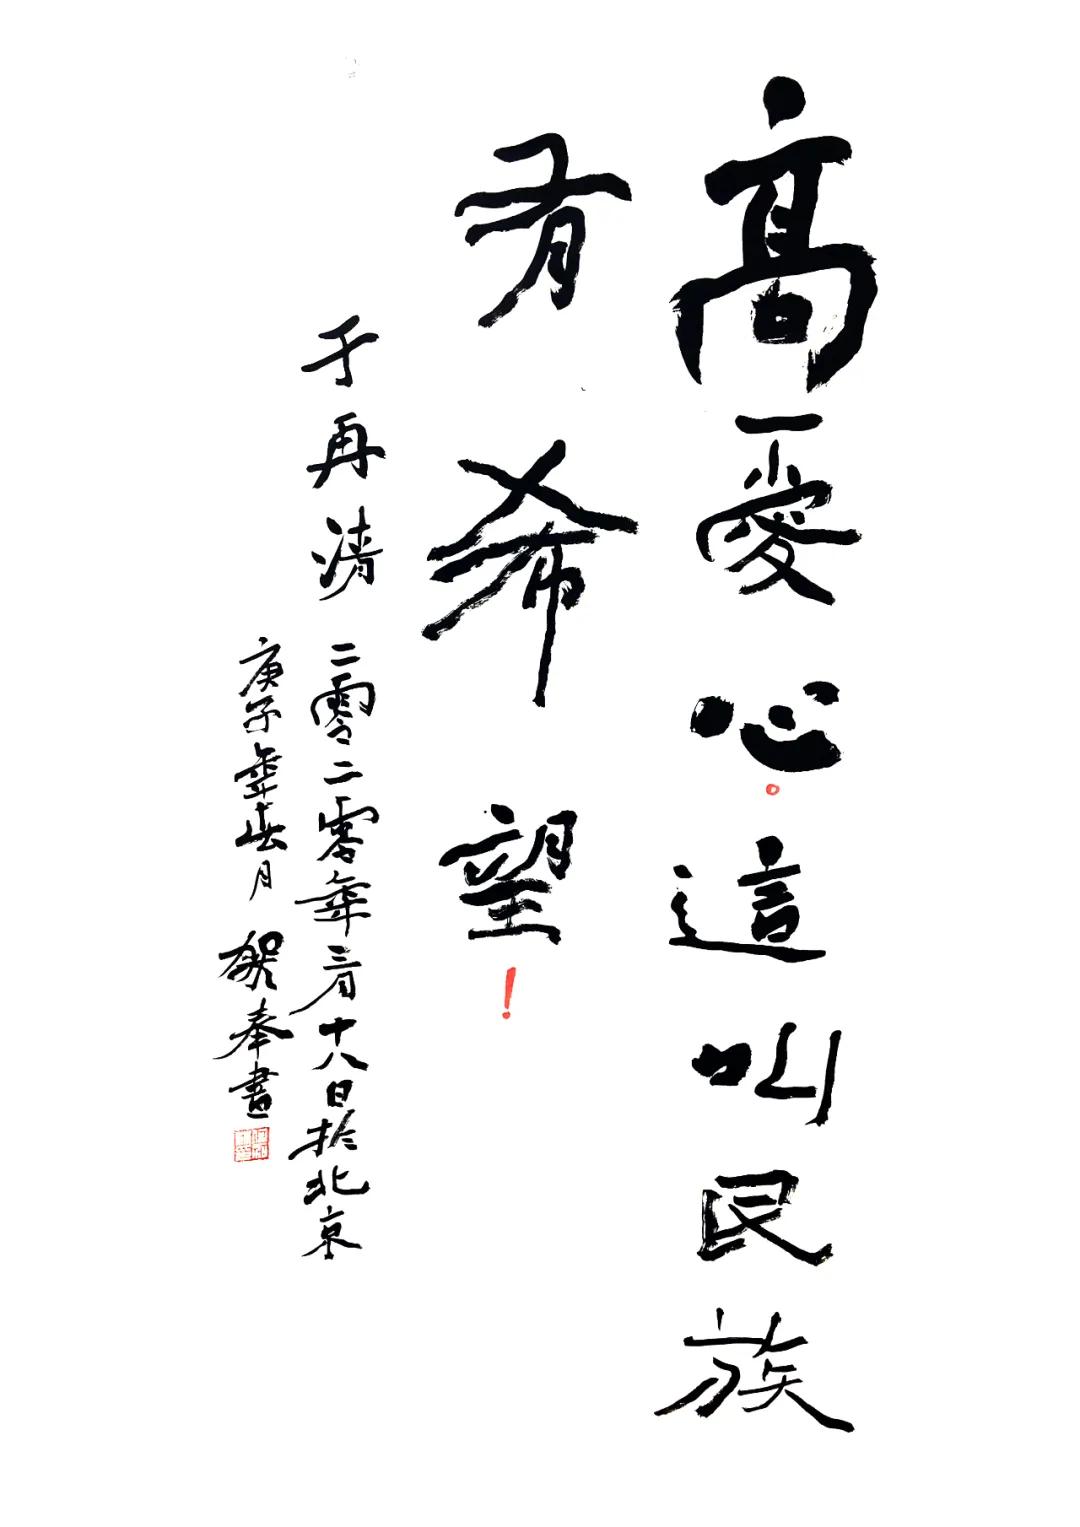 高爱心。這叫民族
有希望！
于再清 二零二零年三月十八日於北京
庚子年春月 賀奉書